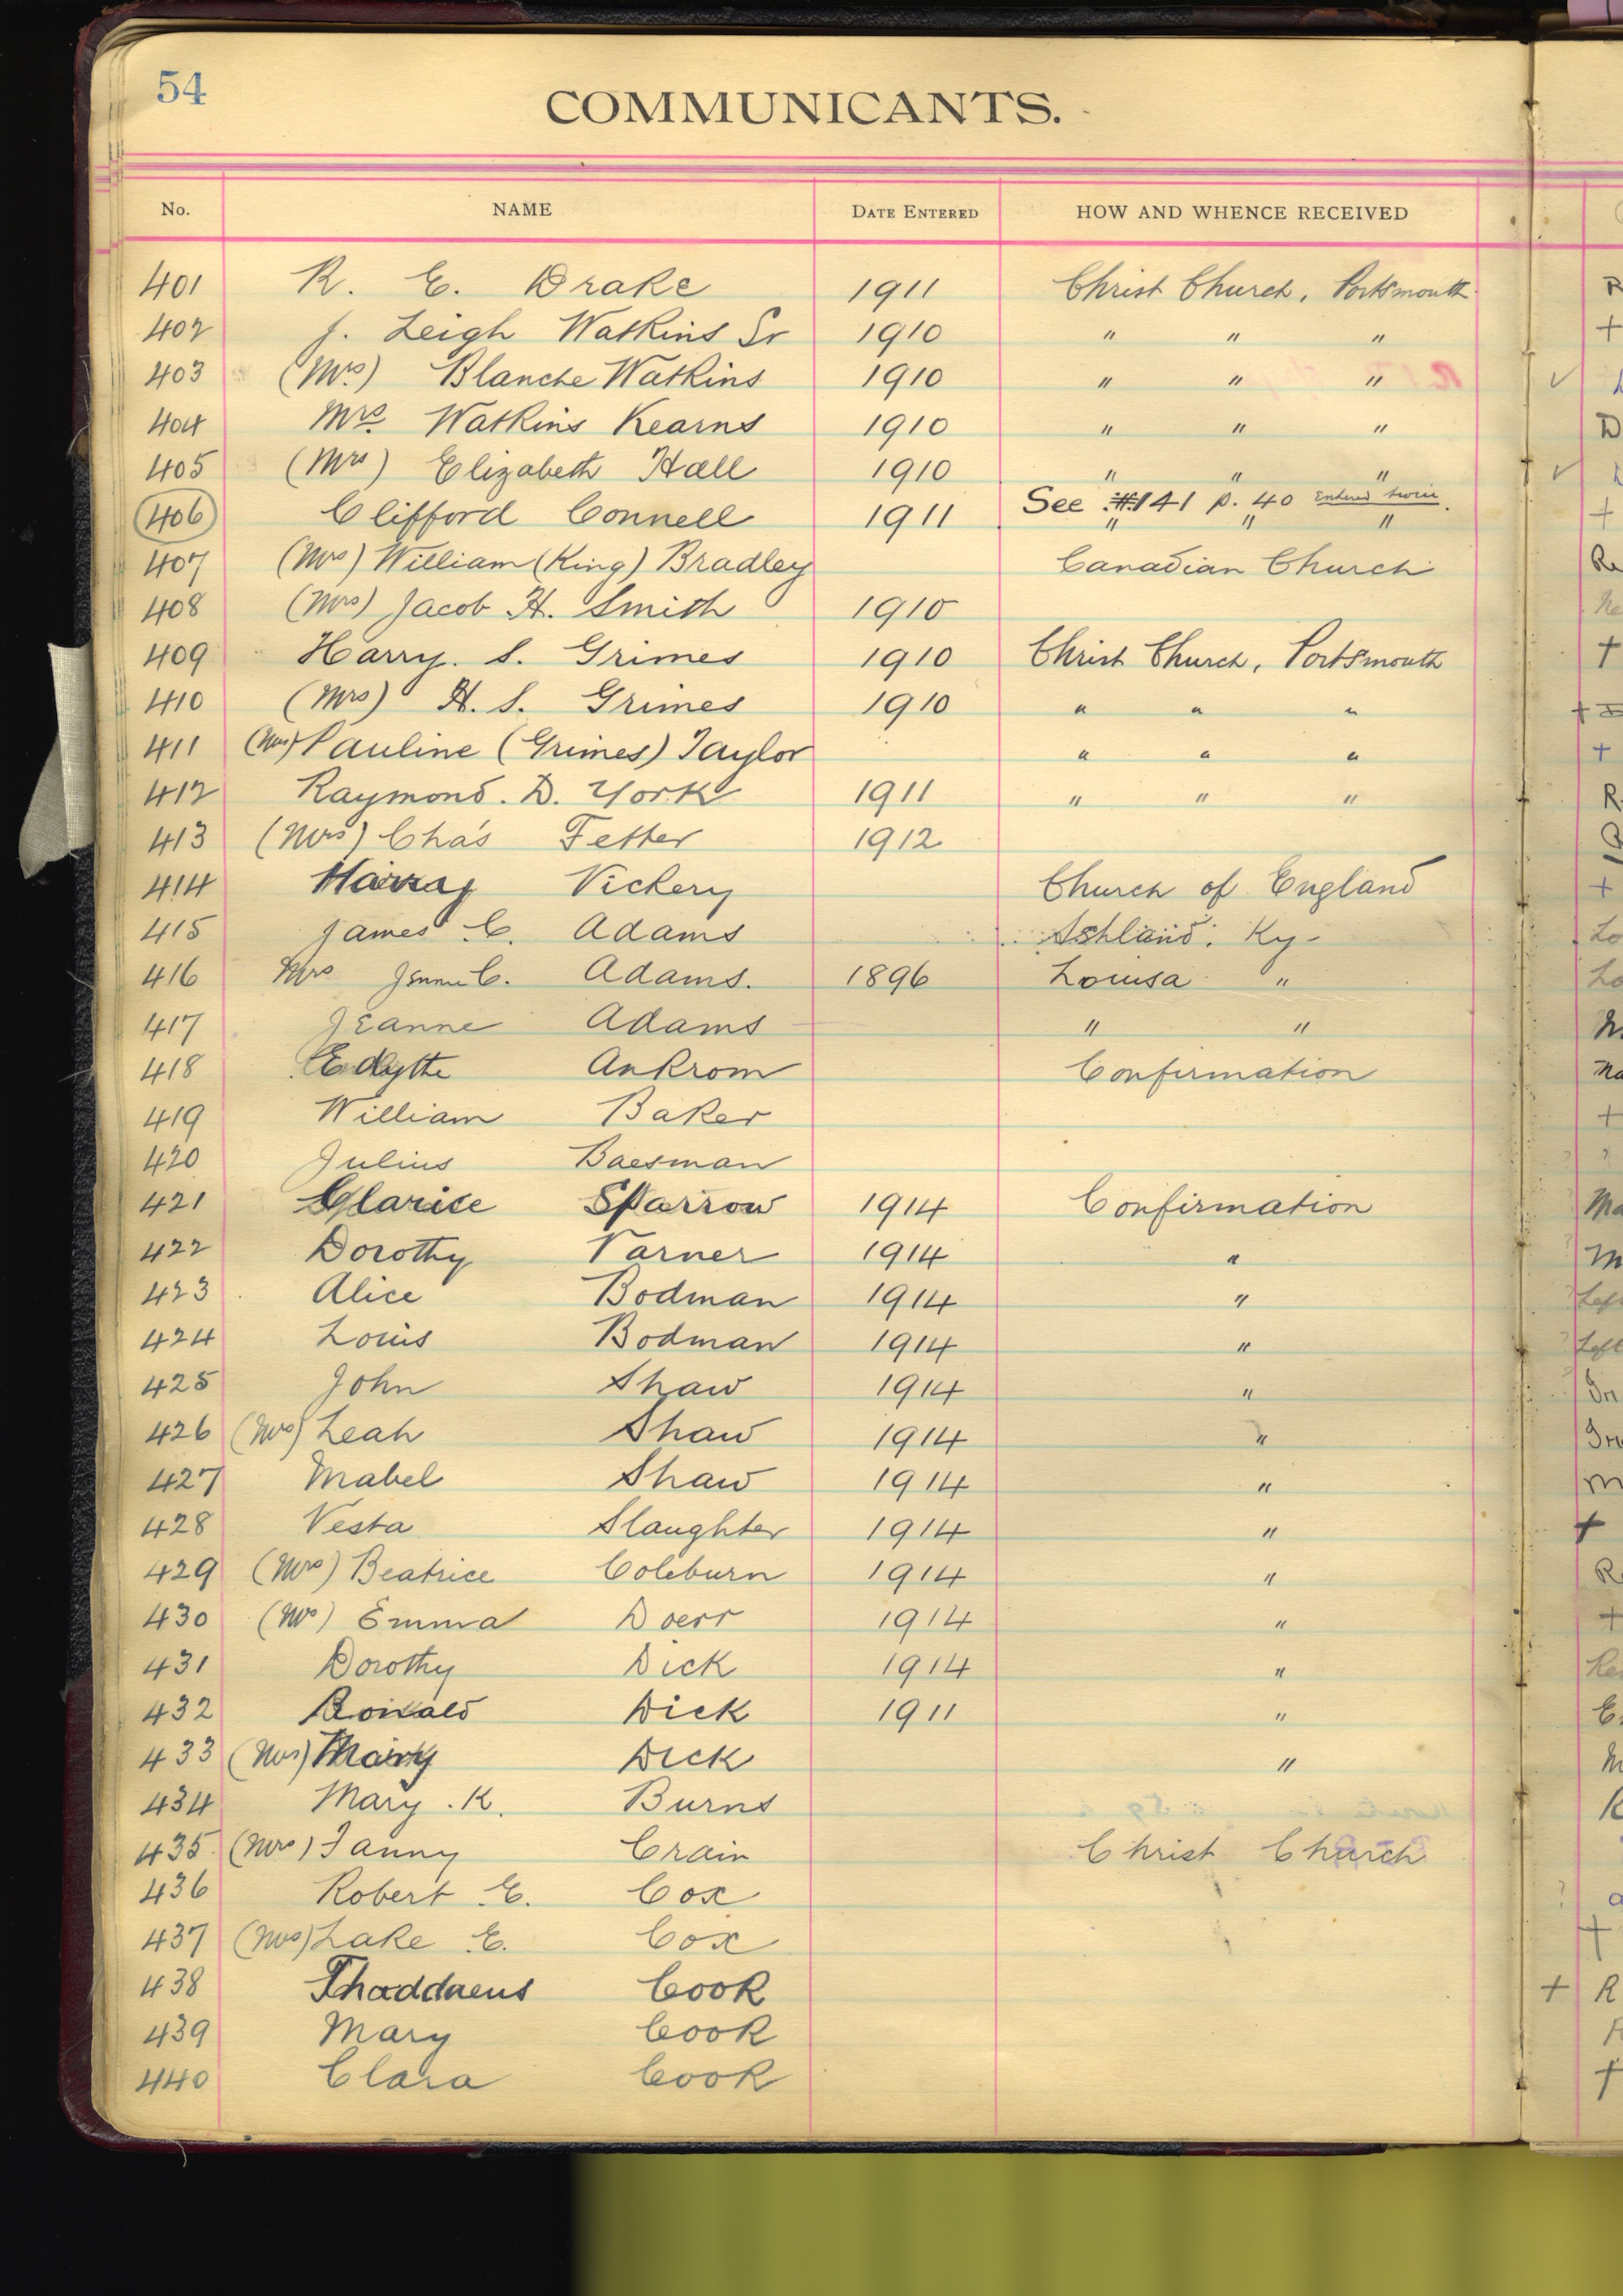 54
COMMUNICANTS.
No. NAME DATE ENTERED HOW AND WHENCE RECEIVED
401 R. E. Drake 1911 Christ Church, Portsmouth
402 J. Leigh Watkins Sr 1910 " " "
403 (Mrs.) Blanche Watkins 1910 " " "
404 Mrs. Watkins Kearns 1910 " " "
405 (Mrs) Elizabeth Hall 1910 " " "
406 Clifford Connell 1911 See #141 p. 40 Entered twice. " " "
407 (Mrs) William (King) Bradley Canadian Church
408 (Mrs) Jacob H. Smith 1910
409 Harry. S. Grimes 1910 Christ Church, Portsmouth
410 (Mrs) H. S. Grimes 1910 " " "
411 (Mrs) Pauline (Grimes) Taylor " " "
412 Raymond. D. York 1911 " " "
413 (Mrs) Cha's Fetter 1912
414 Harry Vickery Church of England
415 James C. Adams Ashland. Ky-
416 Mrs C. Adams. 1896 Louisa "
417 Jeanne Adams " "
418 Edythe Ankrom Confirmation
419 William Baker
420 Julius Baesman
421 Clarice Sparrow 1914 Confirmation
422 Dorothy Varner 1914 "
423 Alice Bodman 1914 "
424 Louis Bodman 1914 "
425 John Shaw 1914 "
426 (Mrs) Leah Shaw 1914 "
427 Mabel Shaw 1914 "
428 Vesta Slaughter 1914 "
429 (Mrs) Beatrice Coleburn 1914 "
430 (Mrs) Emma Doerr 1914 "
431 Dorothy Dick 1914 "
432 Donald Dick 1911 "
433 (Mrs) Mary Dick "
434 Mary. K. Burns
435 (Mrs) Fanny Crain Christ Church
436 Robert E. Cox
437 (Mrs) Lake E. Cox
438 Thaddaeus Cook
439 Mary Cook
440 Clara Cook